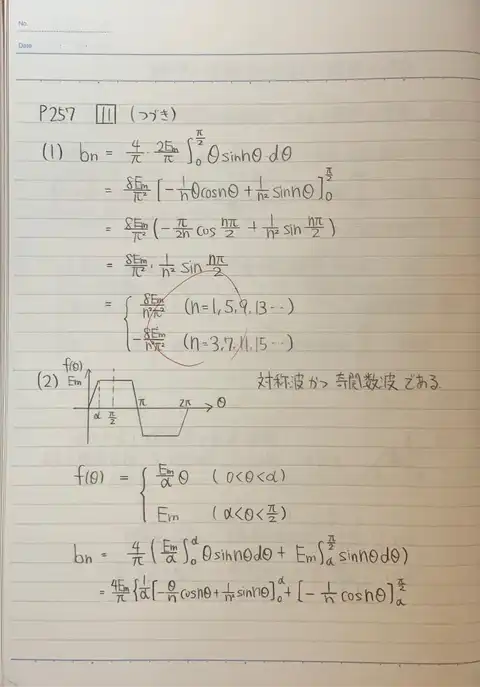 No.
Date
P257 11 (つづき)
(1) bn = 4/π · 2Em/π ∫₀^{π/2} θ sin nθ dθ
= 8Em/π² [-1/n θ cos nθ + 1/n² sin nθ]₀^{π/2}
= 8Em/π² (-π/2n cos nπ/2 + 1/n² sin nπ/2)
= 8Em/π² · 1/n² sin nπ/2
= { 8Em/n²π² (n=1, 5, 9, 13 ···)
-8Em/n²π² (n=3, 7, 11, 15 ···)
(2) f(θ)
Em
α π/2 π 2π θ
対称波かつ奇関数波である
f(θ) = { Em/α θ (0<θ<α)
Em (α<θ<π/2)
bn = 4/π (Em/α ∫₀^α θ sin nθ dθ + Em ∫_α^{π/2} sin nθ dθ)
= 4Em/π {1/α [-θ/n cos nθ + 1/n² sin nθ]₀^α + [-1/n cos nθ]_α^{π/2}